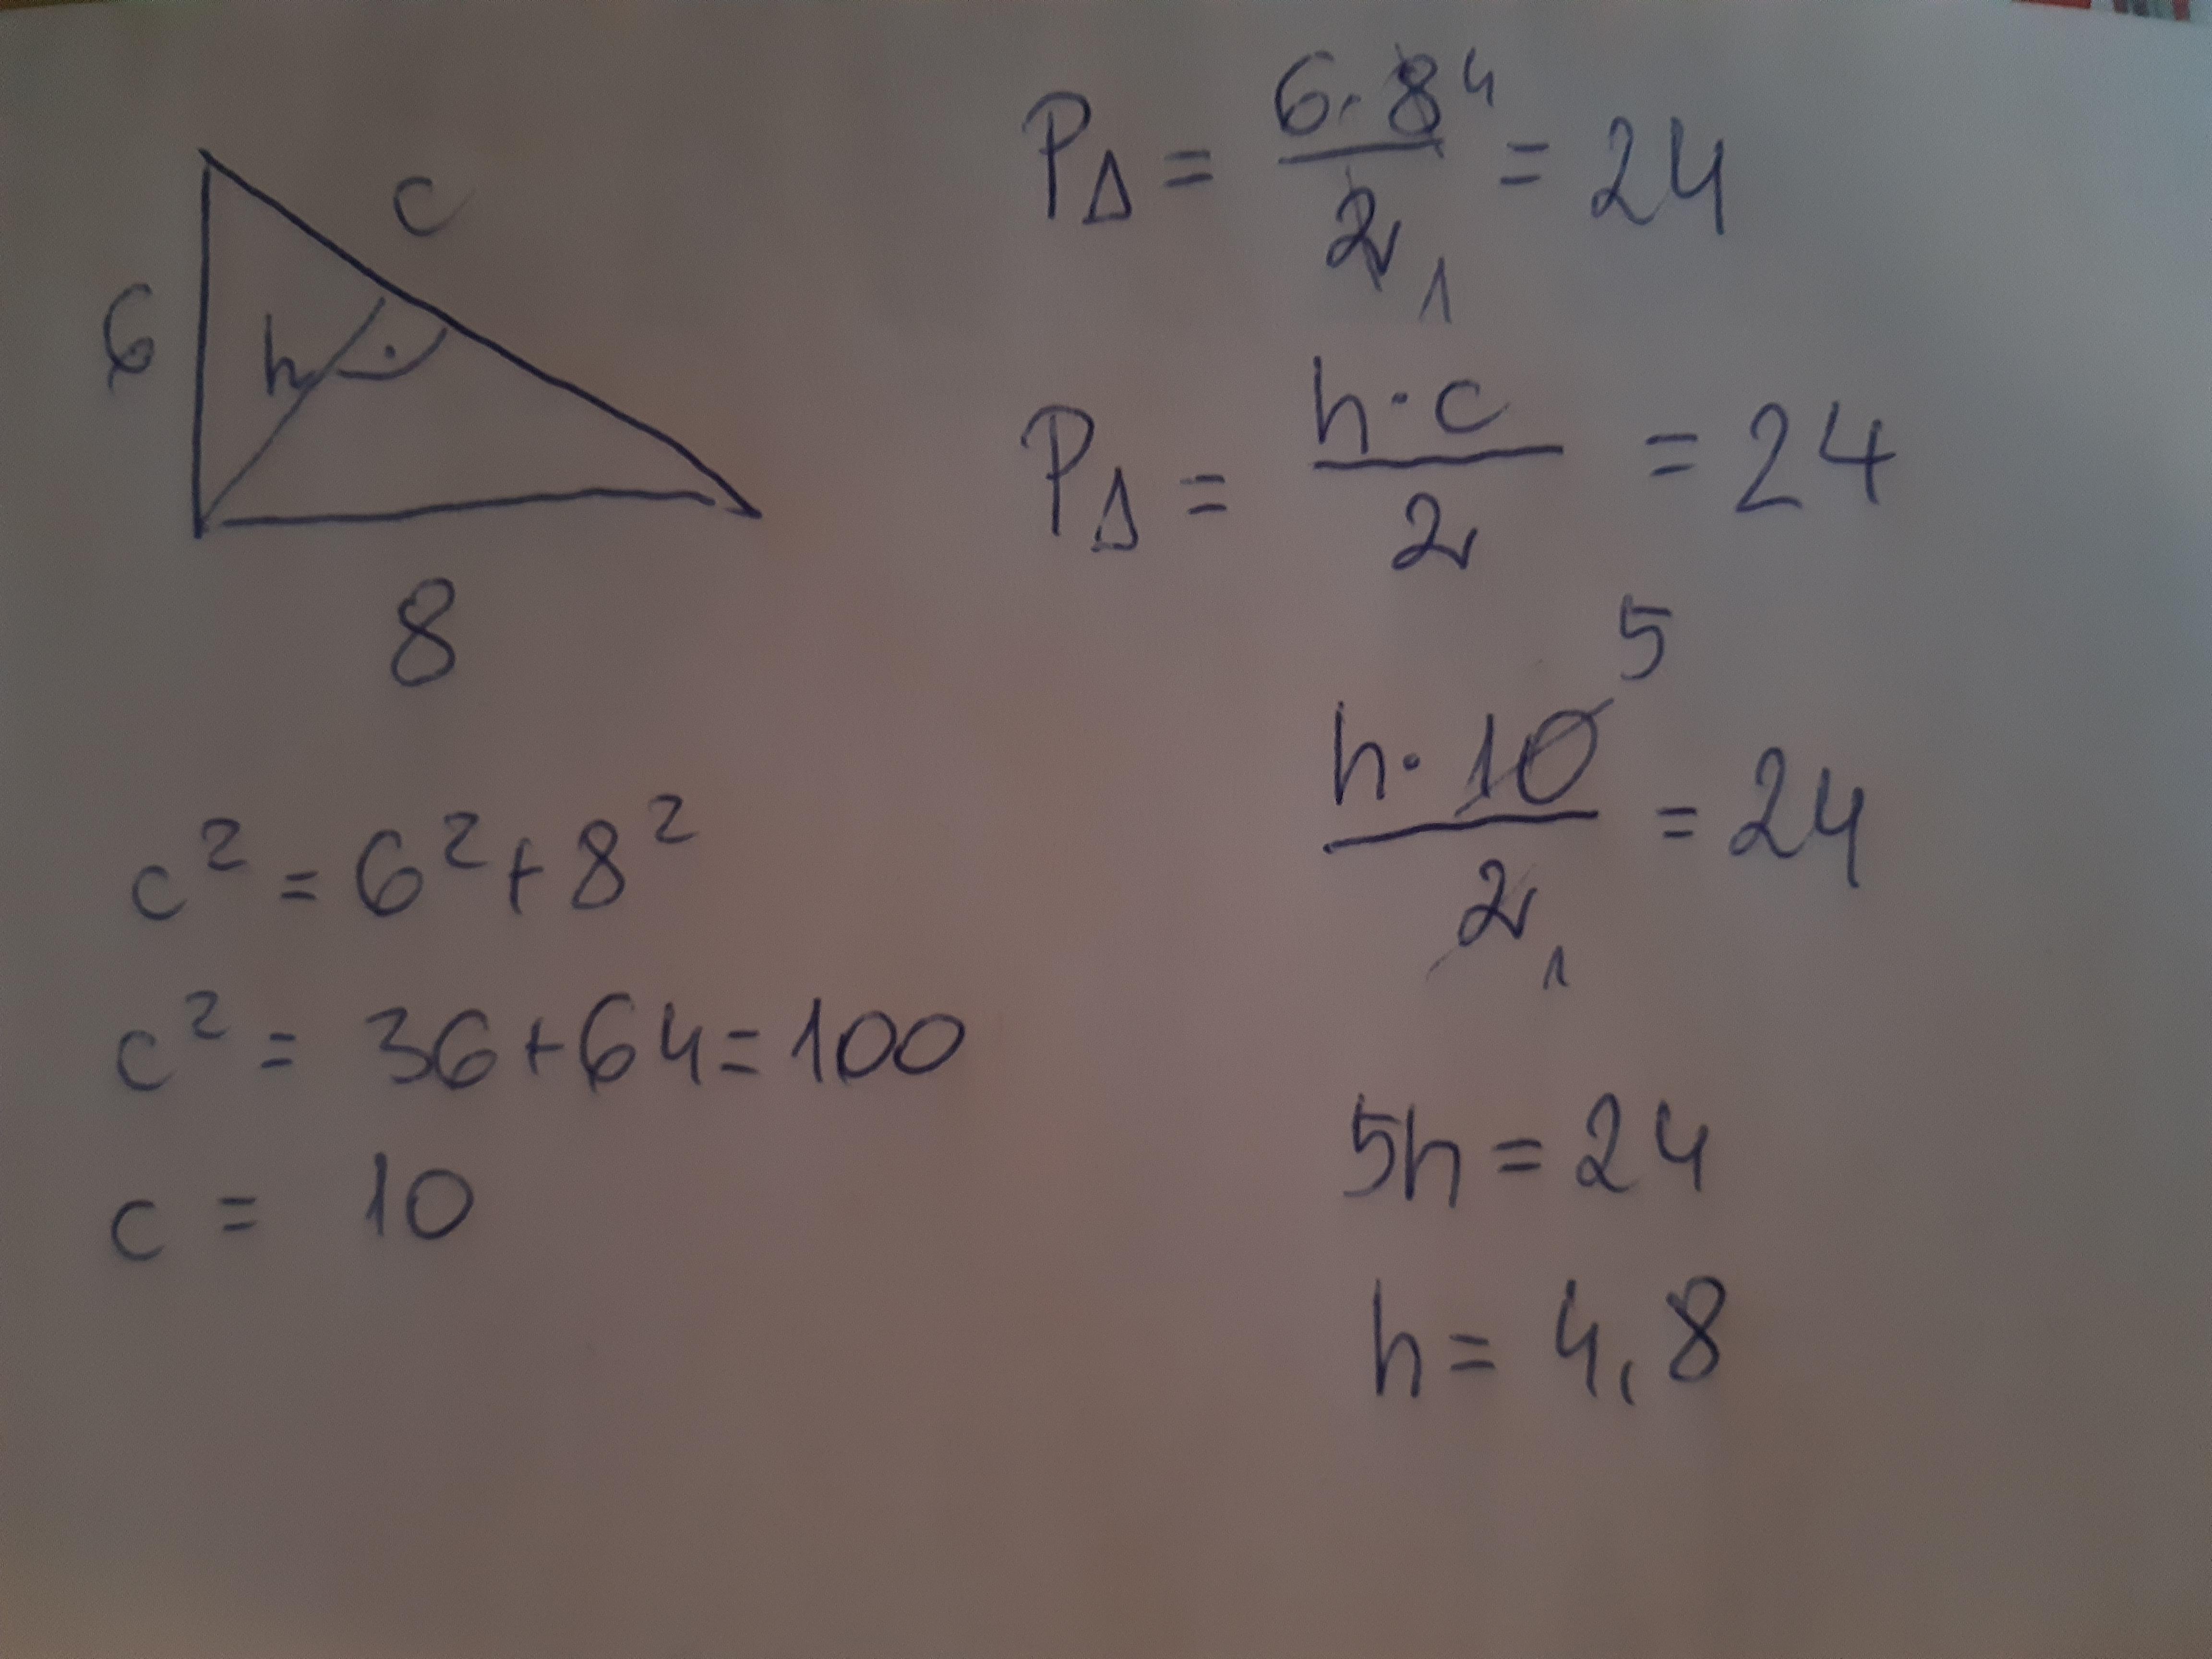 c
6
h
8
c² = 6² + 8²
c² = 36 + 64 = 100
c = 10
P∆ = 6 · 8 4 / 2 1 = 24
P∆ = h · c / 2 = 24
h · 10 5 / 2 1 = 24
5h = 24
h = 4,8